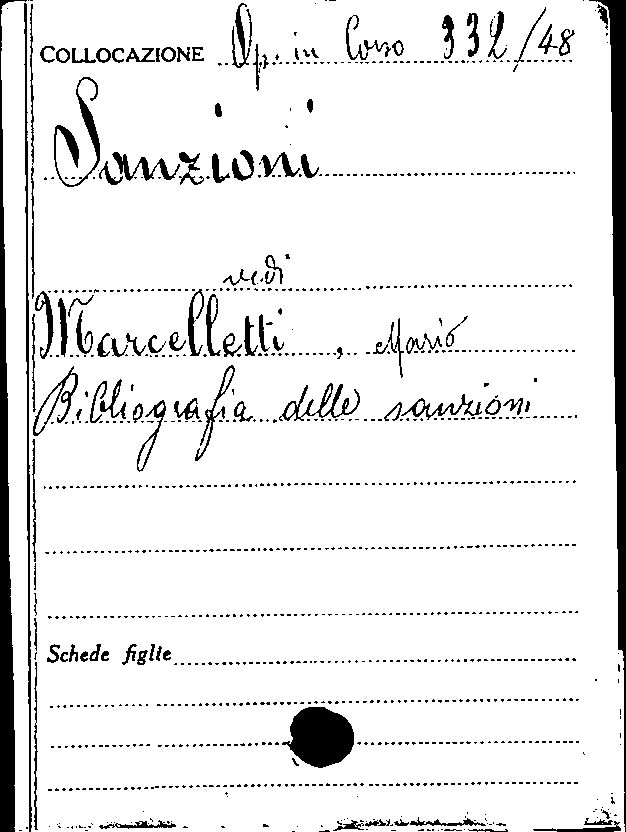 COLLOCAZIONE Op. in Corso 332/48
Sanzioni
vedi
Marcelletti, Mario
Bibliografia delle sanzioni
Schede figlie